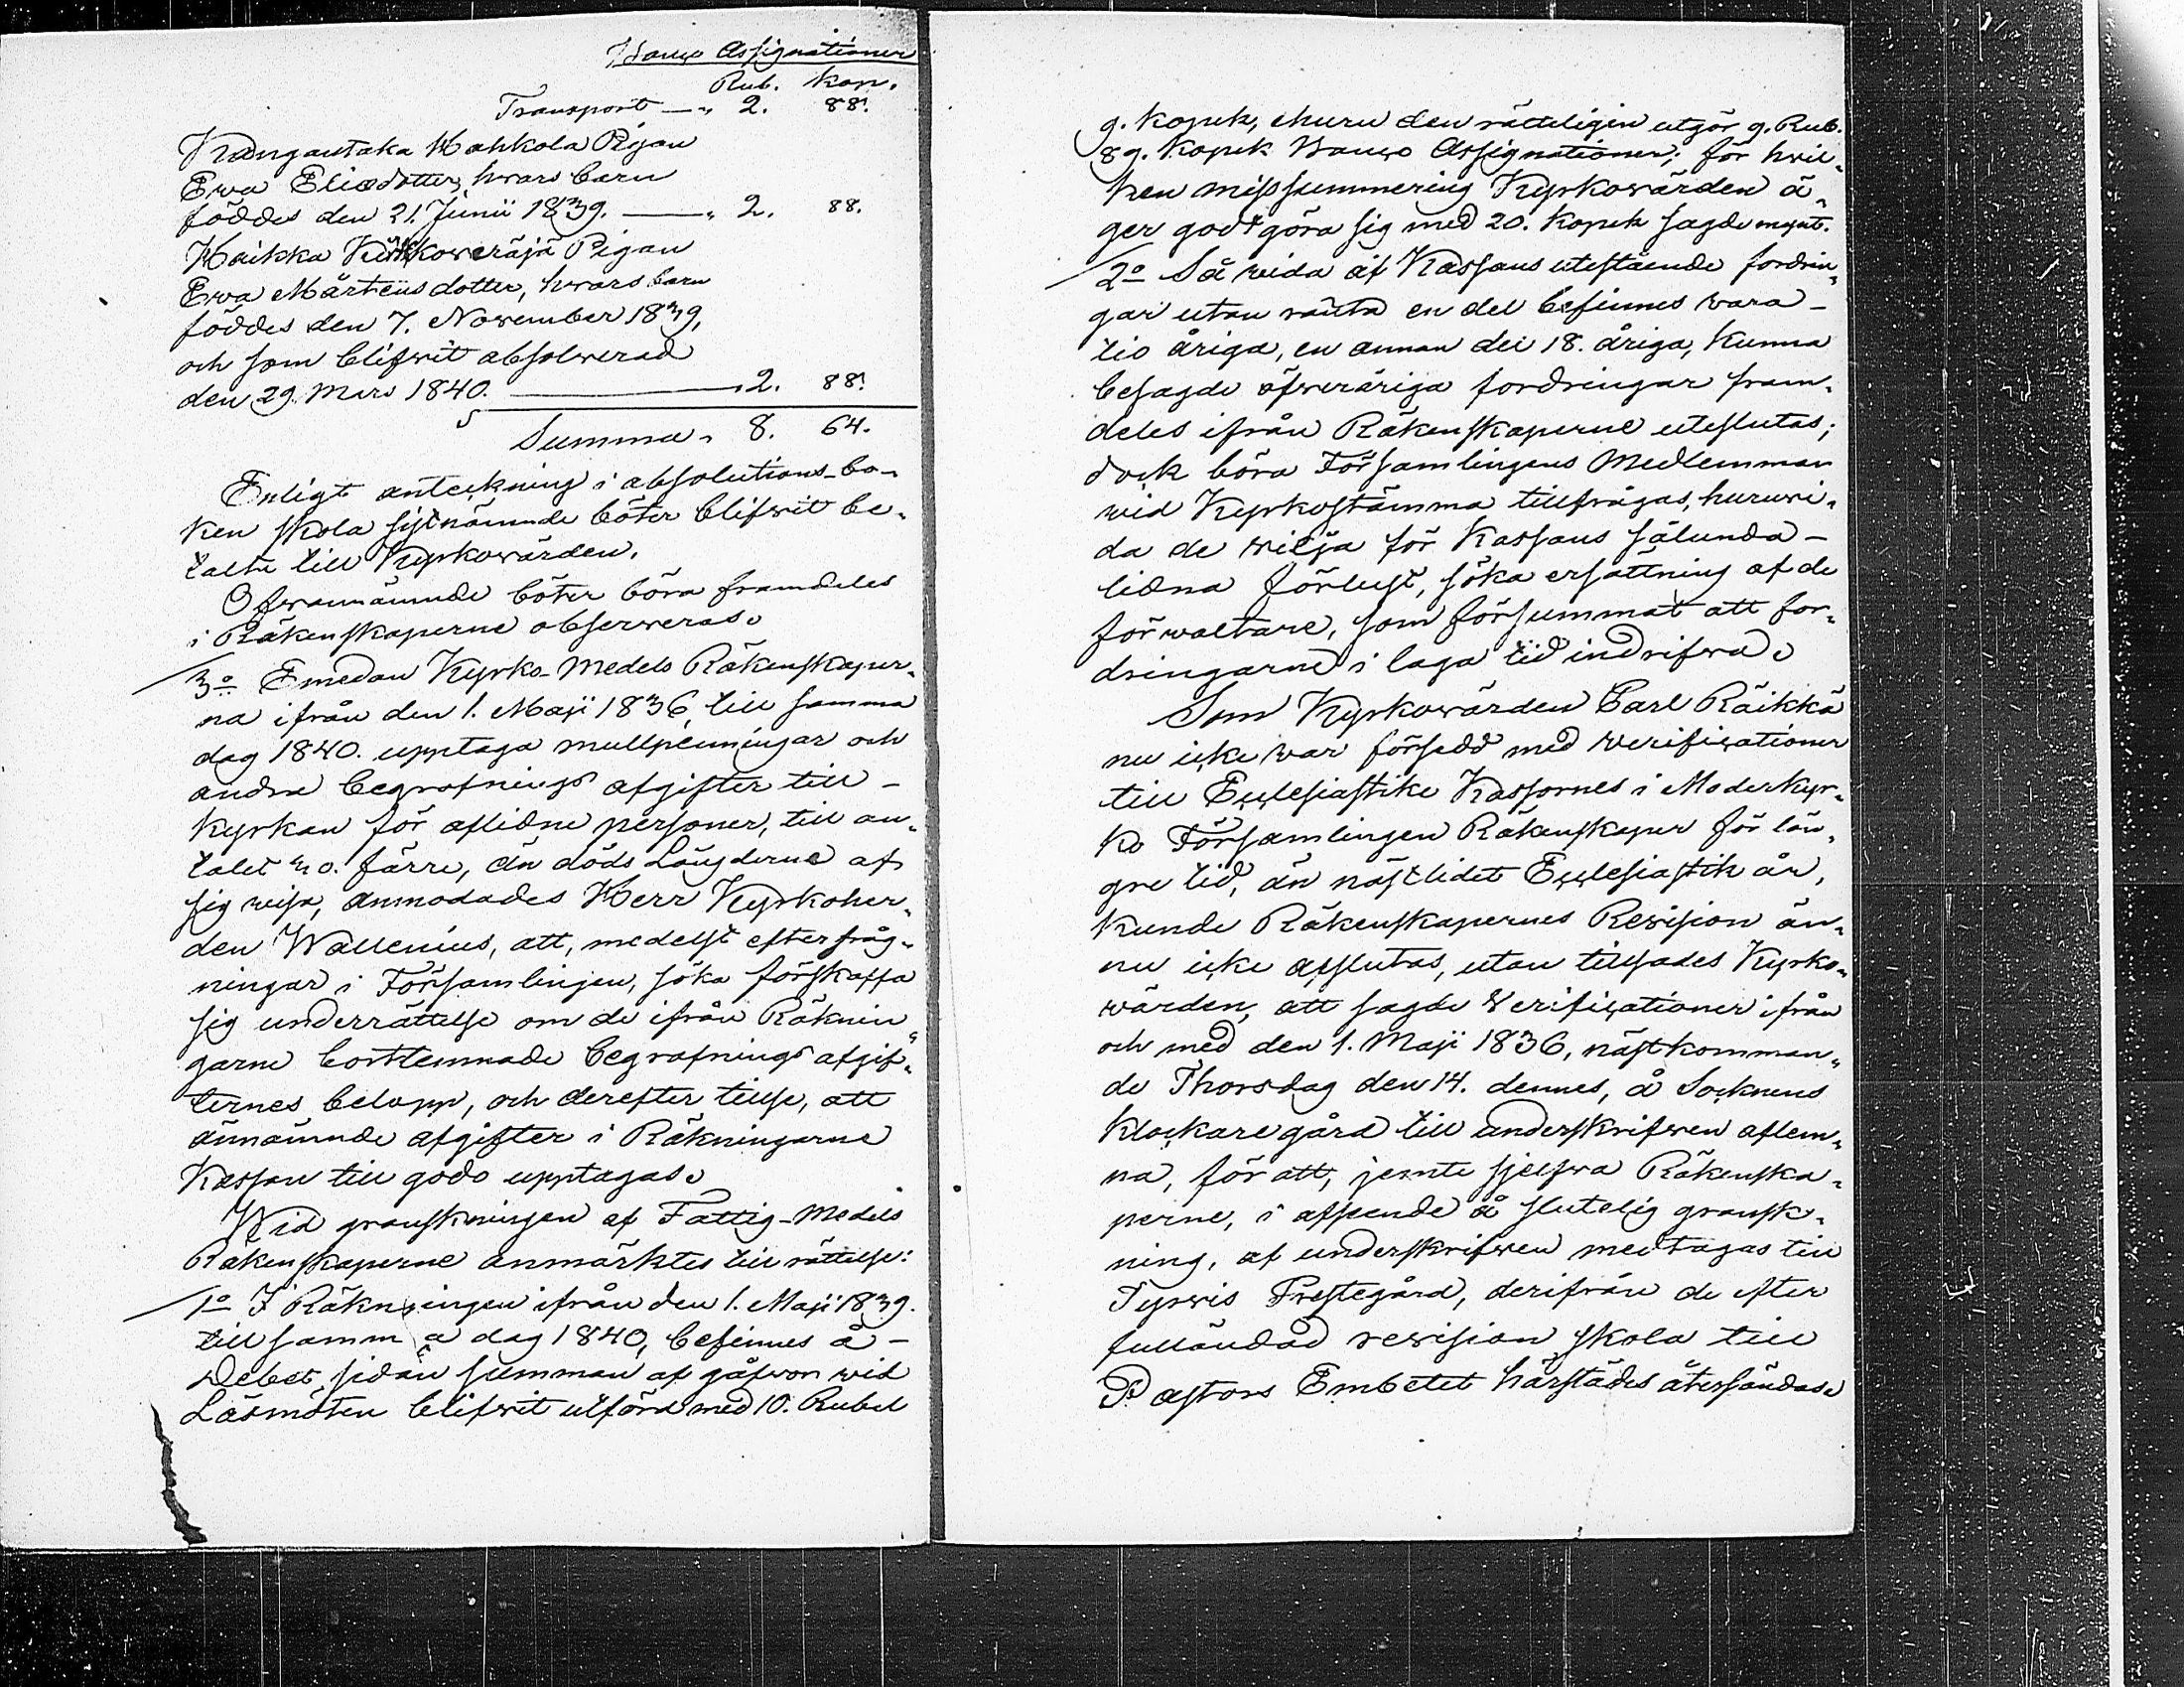 Banco Assignationer
Rub. Kop.
Transport — „ 2. 88.
Kangautaka Hahkola Pigan
Ewa Eliædotter, hwars barn
föddes den 21. Junii 1839. — „ 2. 88.
Haikka Pigan
Ewa Mårtensdotter, hwars barn
föddes den 7. November 1839,
och som blifwit absolwerad
den 29. Mars 1840. — „ 2. 88.
Summa „ 8. 64.
Enligt anteckning i absolutions-bo-
ken skola sistnämnde böter blifwit be-
talte till Kyrkowärden.
Ofwannämnde böter böra framdeles
i Räkenskaperne observeras.
3o Emedan Kyrko-Medels Räkenskaper-
na ifrån den 1. Maji 1836, till samma
dag 1840. upptaga mullpenningar och
andra begrafnings afgifter till
Kyrkan för aflidne personer, till an-
talet 40. färre, än döds Längderne af
sig wisa, anmodades Herr Kyrkoher-
den Wallenius, att, medelst efterfråg-
ningar i Församlingen, söka förskaffa
sig underrättelse om de ifrån Räknin-
garne bortlemnade begrafnings afgif-
ternes belopp, och derefter tillse, att
ännämnde afgifter i Räkningarne
Kassan till godo upptagas.
Wid granskningen af Fattig-Medels
Räkenskaperne anmärktes till rättelse:
1o I Räkningen ifrån den 1. Maji 1839.
till samma dag 1840, befinnes å
Debet sidan summan af gåfwor wid
Läsmöten blifwit utförd med 10. Rubel
9. Kopek, ehuru den rätteligen utgör 9. Rub.
89. Kopek Banco Assignationer; för hwil-
ken missummering Kyrkowärden ä-
ger godtgöra sig med 20. Kopek sagde mynt.
2o Så wida af Kassans utestående fordrin-
gar utan ränta en del befinnes wara
tio åriga, en annan del 18. åriga, kunna
besagde öfweråriga fordringar fram-
deles ifrån Räkenskaperne uteslutas;
dock böra Församlingens Medlemmar
wid Kyrkostämma tillfrågas, huruwi-
da de wilja för Kassans sålunda
lidna förlust, söka ersättning af de
förwaltare, som försummat att for-
dringarne i laga tid indrifwa.
Som Kyrkowärden Carl Räikkä
nu icke war försedd med verificationer
till Ecclesiastike Kassornes i Moderkyr-
ko Församlingen Räkenskaper för län-
gre tid, än nästlidet Ecclesiastik år,
kunde Räkenskapernes Revision än-
nu icke afslutas, utan tillsades Kyrko-
wärden, att sagde Verificationer ifrån
och med den 1. Maji 1836, nästkomman-
de Thorsdag den 14. dennes, å Socknens
Klockaregård till underskrifwen aflem-
na, för att, jemte sjelfwa Räkenska-
perne, i afseende å slutelig gransk-
ning, af underskrifwen medtagas till
Tyrwis Prestegård, derifrån de efter
fulländad revision skola till
Pastors Embetet härstädes återsändas.